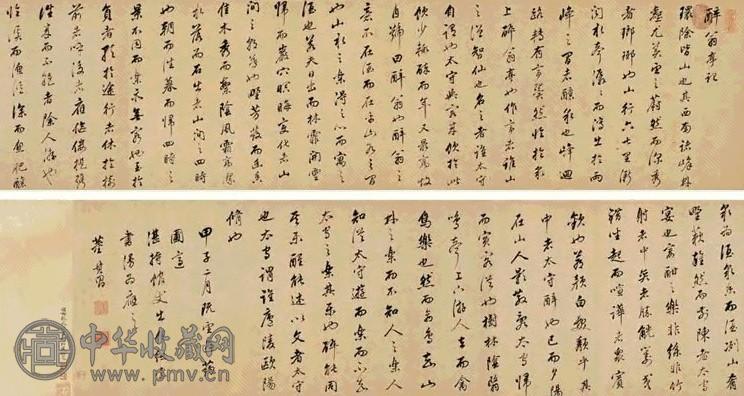 醉翁亭記
環滁皆山也其西南諸峰林
壑尤美望之蔚然而深秀
者瑯琊也山行六七里漸
聞水聲潺潺而瀉出於兩
峰之間者釀泉也峰迴
路轉有亭翼然臨於泉
上醉翁亭也作亭者誰山
之僧智仙也名之者誰太守
自謂也太守與客來飲於此
飲少輒醉而年又最高故
自號曰醉翁也醉翁之
意不在酒而在乎山水之間
也山水之樂得之心而寓之
酒也若夫日出而林霏開雲
歸而巖穴暝晦明變化者山
間之朝暮也野芳發而幽香
佳木秀而繁陰風霜高潔
水落而石出者山間之四時
也朝而往暮而歸四時之
景不同而樂亦無窮也至於
負者歌於途行者休於樹
前者呼後者應傴僂提攜
往來而不絕者滁人遊也
臨溪而漁溪深而魚肥釀
泉為酒泉香而酒洌山肴
野蔌雜然而前陳者太守
宴也宴酣之樂非絲非竹
射者中弈者勝觥籌交
錯坐起而諠譁者眾賓
歡也蒼顏白髮頹乎其
中者太守醉也已而夕陽
在山人影散亂太守歸
而賓客從也樹林陰翳
鳴聲上下遊人去而禽
鳥樂也然而禽鳥知山
林之樂而不知人之樂人
知從太守遊而樂而不知
太守之樂其樂也醉能同
其樂醒能述以文者太守
也太守謂誰廬陵歐陽
脩也
甲子二月
董其昌
中华收藏网
www.pmv.cn